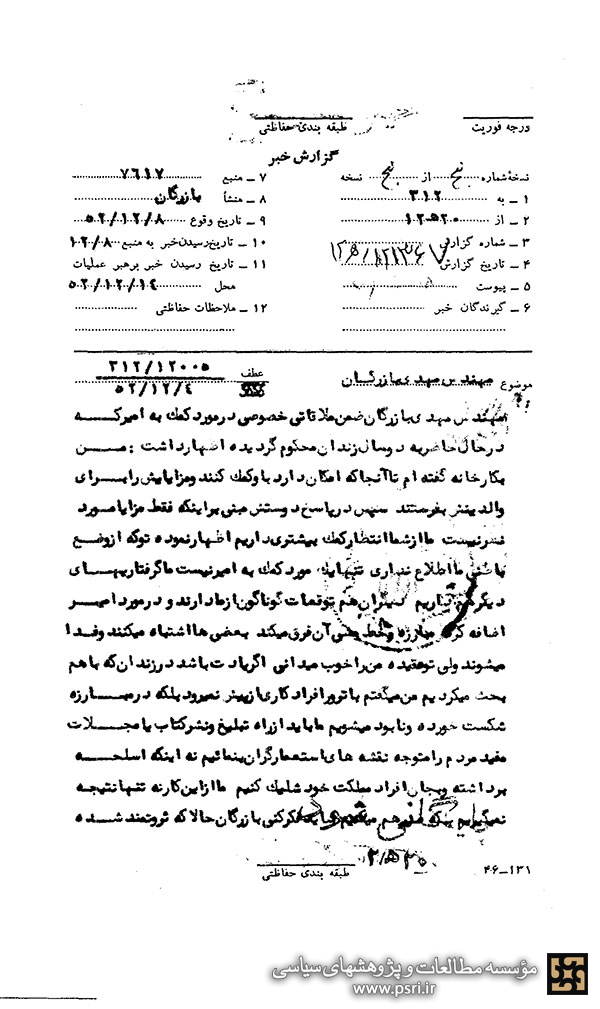 درجه فوریت
طبقه بندی حفاظتی
گزارش خبر
نسخهٔ شماره پنج از پنج نسخه
۱ ـ به ۳۱۲
۲ ـ از ۲۰ه۱۲
۳ ـ شماره گزارش
۴ ـ تاریخ گزارش
۵ ـ پیوست
۶ ـ گیرندگان خبر
۷ ـ منبع ۷۶۱۷
۸ ـ منشأ بازرگان
۹ ـ تاریخ وقوع ۵۲/۱۲/۸
۱۰ ـ تاریخ رسیدن خبر به منبع ۱۲/۸
۱۱ ـ تاریخ رسیدن خبر برهبر عملیات
محل ۵۲/۱۲/۱۴
۱۲ ـ ملاحظات حفاظتی
موضوع مهندس مهدی بازرگان
عطف ۳۱۲/۱۲۰۰۵
۵۲/۱۲/۴
مهندس مهدی بازرگان ضمن ملاقاتی خصوصی در مورد کمک به امیر که
در حال حاضر به دو سال زندان محکوم گردیده اظهار داشت : من
بکارخانه گفته ام تا آنجا که امکان دارد باو کمک کنند و مزایایش را برای
والدینش بفرستند سپس در پاسخ دوستش مبنی بر اینکه فقط مزایا مورد
نظر نیست ما از شما انتظار کمک بیشتری داریم اظهار نموده تو که از وضع
ما اطلاع نداری تنها یک مورد کمک به امیر نیست ما گرفتاریهای
دیگر هم داریم دیگران هم توقعات گوناگون از ما دارند و در مورد امیر
اضافه کرد مبارزه و خط مشی آن فرق میکند بعضی ها اشتباه میکنند و فدا
میشوند ولی تو عقیده من را خوب میدانی اگر یادت باشد در زندان که با هم
بحث میکردیم من میگفتم با ترور افراد کاری از پیش نمیرود بلکه در مبارزه
شکست خورده و نابود میشویم ما باید از راه تبلیغ و نشر کتاب یا مجلات
مفید مردم را متوجه نقشه های استعمارگران بنمائیم نه اینکه اسلحه
برداشته و بجان افراد مملکت خود شلیک کنیم ما از این کار نه تنها نتیجه
نمیگیریم بلکه هم میشویم فکر کنی بازرگان حالا که ثروتمند شده
۲۰ه۲
طبقه بندی حفاظتی
۴۶ـ۱۳۱
مؤسسه مطالعات و پژوهشهای سیاسی
www.psri.ir